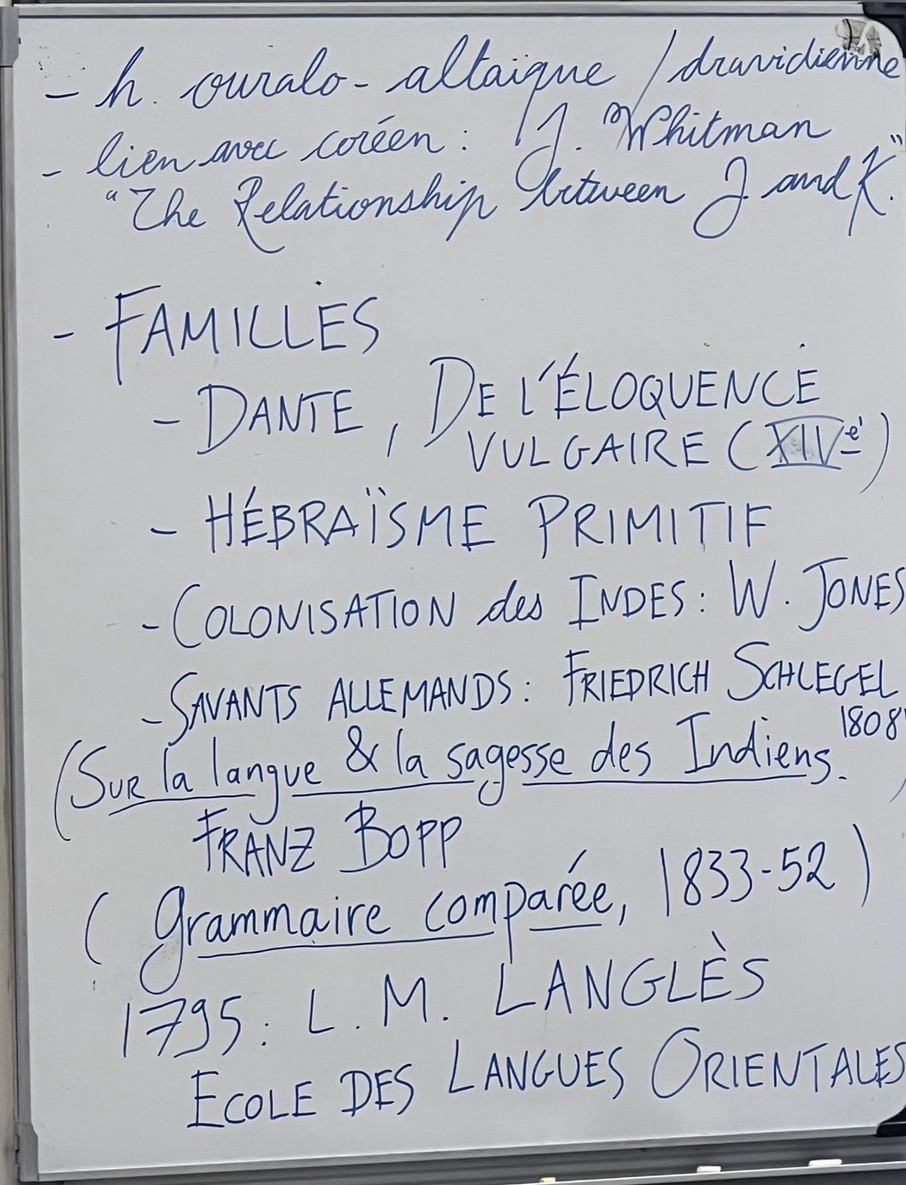 - h. ouralo-altaïque / dravidienne
- lien avec coréen : J. Whitman
"The Relationship between J and K."
- FAMILLES
- DANTE, DE L'ÉLOQUENCE
VULGAIRE (XIVe)
- HÉBRAÏSME PRIMITIF
- COLONISATION des INDES : W. JONES
- SAVANTS ALLEMANDS : FRIEDRICH SCHLEGEL
(SUR la langue & la sagesse des Indiens. 1808)
FRANZ BOPP
(Grammaire comparée, 1833-52)
1795 : L. M. LANGLÈS
ECOLE DES LANGUES ORIENTALES